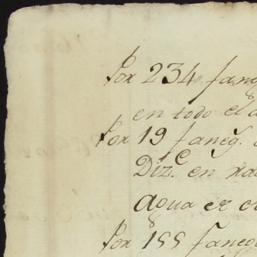 Por 234 faneg
en todo el a
Por 19 faneg.
Diz.e en
agua er
Por 155 faneg